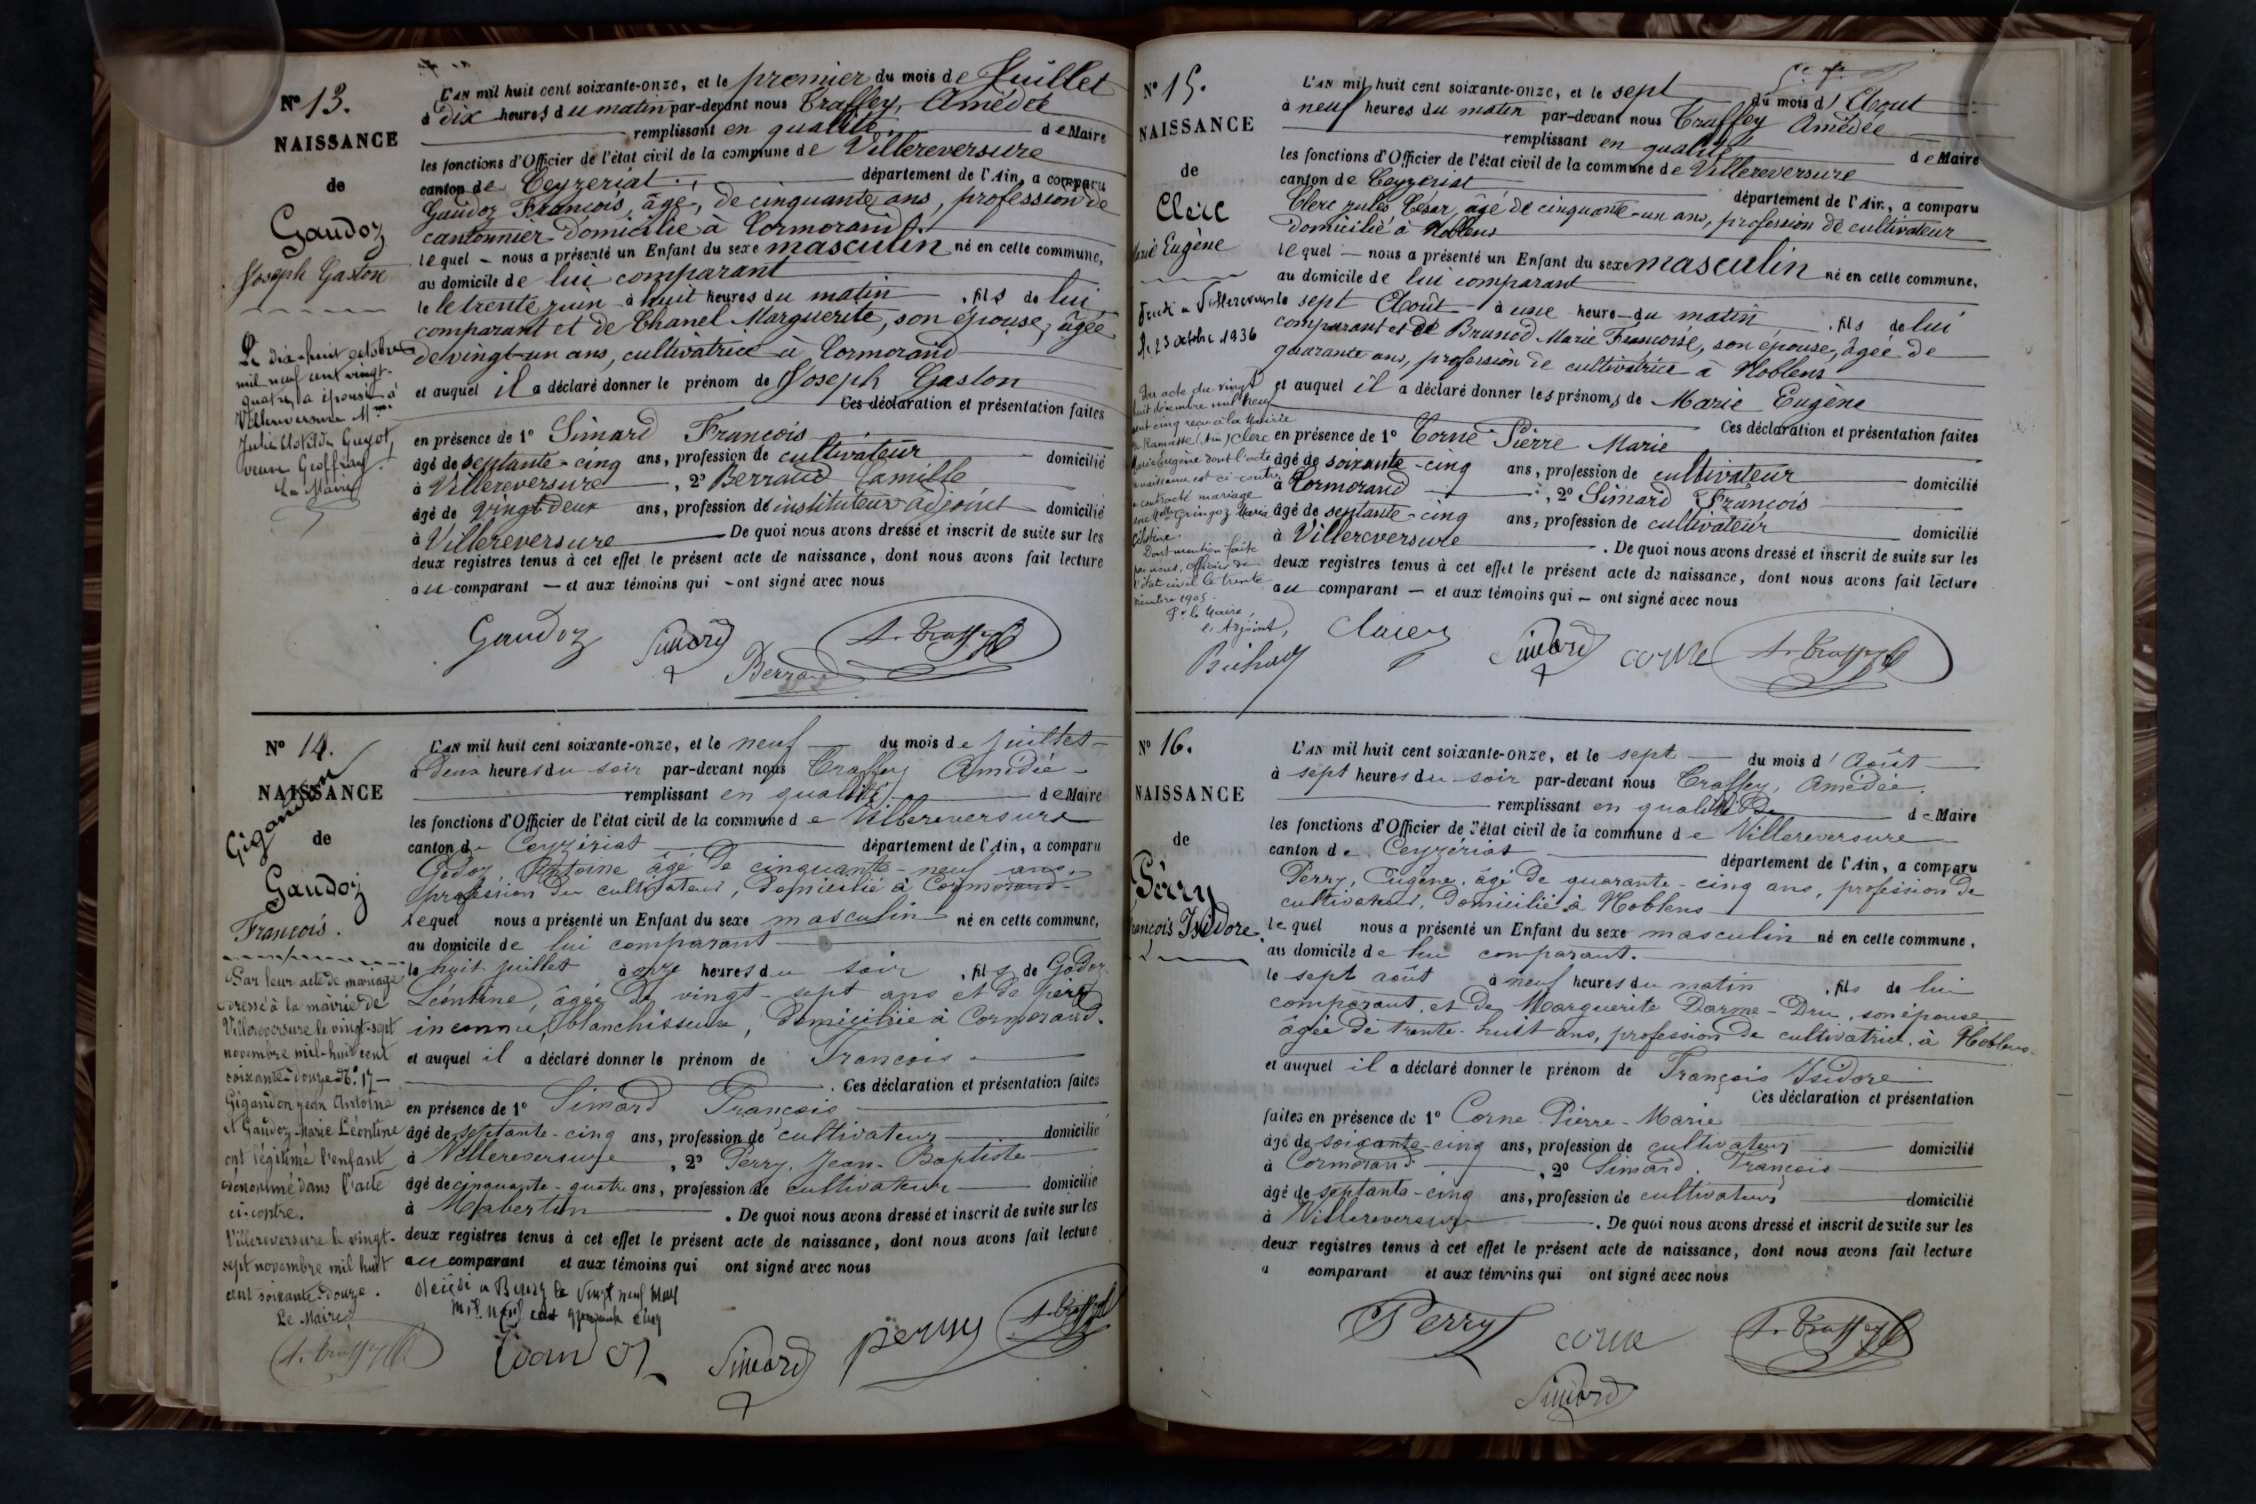 N° 13.
NAISSANCE
de
Gaudoz
Joseph Gaston
Le dix-huit octobre
mil neuf cent vingt-
quatre, a épousé à
Villereversure Mme
Julie Clotilde Guyot,
veuve Geoffray.
Le Maire
L'AN mil huit cent soixante-onze, et le premier du mois de Juillet
à dix heures du matin par-devant nous Traffey, Amédée
remplissant en qualité de Maire
les fonctions d'Officier de l'état civil de la commune de Villereversure
canton de Ceyzeriat département de l'Ain, a comparu
Gaudoz François, âgé, de cinquante ans, profession de
cantonnier domicilié à Cormorand.
lequel – nous a présenté un Enfant du sexe masculin né en cette commune,
au domicile de lui comparant
le le trente juin à huit heures du matin, fils de lui
comparant et de Chanel Marguerite, son épouse, âgée
de vingt-un ans, cultivatrice à Cormorand
et auquel il a déclaré donner le prénom de Joseph Gaston
Ces déclaration et présentation faites
en présence de 1° Simard François
âgé de septante-cinq ans, profession de cultivateur domicilié
à Villereversure, 2° Berraud Camille
âgé de vingt-deux ans, profession de instituteur adjoint domicilié
à Villereversure De quoi nous avons dressé et inscrit de suite sur les
deux registres tenus à cet effet le présent acte de naissance, dont nous avons fait lecture
au comparant — et aux témoins qui – ont signé avec nous
Gaudoz Simard Berraud A. Traffey
N° 14.
NAISSANCE
Gigandon
de
Gaudoz
François.
Par leur acte de mariage
dressé à la mairie de
Villereversure le vingt-sept
novembre mil-huit cent
soixante-douze N° 17 —
Gigandon Jean Antoine
et Gaudoz Marie Léontine
ont légitimé l'enfant
dénommé dans l'acte
ci-contre.
Villereversure le vingt-
sept novembre mil huit
cent soixante-douze.
Le Maire
A. Traffey
L'AN mil huit cent soixante-onze, et le neuf du mois de juillet
à deux heures du soir par-devant nous Traffey Amédée
remplissant en qualité de Maire
les fonctions d'Officier de l'état civil de la commune de Villereversure
canton de Ceyzériat département de l'Ain, a comparu
Godoz, Antoine âgé de cinquante-neuf ans,
profession de cultivateur, domicilié à Cormorand
Lequel nous a présenté un Enfant du sexe masculin né en cette commune,
au domicile de lui comparant
le huit juillet à onze heures du soir, fils de Godoz
Léontine, âgée de vingt-sept ans et de père
inconnu, blanchisseuse, domiciliée à Cormorand.
et auquel il a déclaré donner le prénom de François
. Ces déclaration et présentation faites
en présence de 1° Simard François
âgé de septante-cinq ans, profession de cultivateur domicilié
à Villereversure, 2° Perry, Jean-Baptiste
âgé de cinquante-quatre ans, profession de cultivateur domicilié
à Noblens De quoi nous avons dressé et inscrit de suite sur les
deux registres tenus à cet effet le présent acte de naissance, dont nous avons fait lecture
au comparant et aux témoins qui ont signé avec nous
décédé à Bourg le vingt neuf
mil neuf cent quarante cinq
Simard perry A. Traffey
N° 15.
NAISSANCE
de
Clerc
Marie Eugène
Décédé à Villereversure
le 23 octobre 1936
Par acte du vingt
huit décembre mil neuf
cent cinq reçu à la Mairie
de Ramasse (Ain) Clerc
Marie Eugène dont l'acte
de naissance est ci-contre
a contracté mariage
avec Gringoz Maria
Célestine.
Dont mention faite
par nous, officier de
l'état civil le trente
décembre 1905.
Pr le Maire,
l'Adjoint,
L'AN mil huit cent soixante-onze, et le sept du mois d'Août
à neuf heures du matin par-devant nous Traffey Amédée
remplissant en qualité de Maire
les fonctions d'Officier de l'état civil de la commune de Villereversure
canton de Ceyzériat département de l'Ain, a comparu
Clerc Jules César, âgé de cinquante-un ans, profession de cultivateur
domicilié à Noblens
lequel — nous a présenté un Enfant du sexe masculin né en cette commune,
au domicile de lui comparant
le sept Août à une heure du matin, fils de lui
comparant et de Brunod Marie Françoise, son épouse, âgée de
quarante ans, profession de cultivatrice à Noblens
et auquel il a déclaré donner les prénoms de Marie Eugène
Ces déclaration et présentation faites
en présence de 1° Corne Pierre Marie
âgé de soixante-cinq ans, profession de cultivateur domicilié
à Cormorand, 2° Simard François
âgé de septante-cinq ans, profession de cultivateur domicilié
à Villereversure. De quoi nous avons dressé et inscrit de suite sur les
deux registres tenus à cet effet le présent acte de naissance, dont nous avons fait lecture
au comparant — et aux témoins qui – ont signé avec nous
Simard corne A. Traffey
N° 16.
NAISSANCE
de
Perry
François Isidore.
L'AN mil huit cent soixante-onze, et le sept du mois d'Août
à sept heures du soir par-devant nous Traffey, Amédée.
remplissant en qualité de Maire
les fonctions d'Officier de l'état civil de la commune de Villereversure
canton de Ceyzériat département de l'Ain, a comparu
Perry, Eugène, âgé de quarante-cinq ans, profession de
cultivateur, domicilié à Noblens
lequel nous a présenté un Enfant du sexe masculin né en cette commune,
au domicile de lui comparant.
le sept août à neuf heures du matin, fils de lui
comparant, et de Marguerite Darme-Dru, son épouse
âgée de trente-huit ans, profession de cultivatrice, à Noblens.
et auquel il a déclaré donner le prénom de François Isidore
Ces déclaration et présentation
faites en présence de 1° Corne Pierre-Marie
âgé de soixante-cinq ans, profession de cultivateur domicilié
à Cormorand, 2° Simard, François
âgé de septante-cinq ans, profession de cultivateur domicilié
à Villereversure. De quoi nous avons dressé et inscrit de suite sur les
deux registres tenus à cet effet le présent acte de naissance, dont nous avons fait lecture
a comparant et aux témoins qui ont signé avec nous
Perry corne A. Traffey
Simard